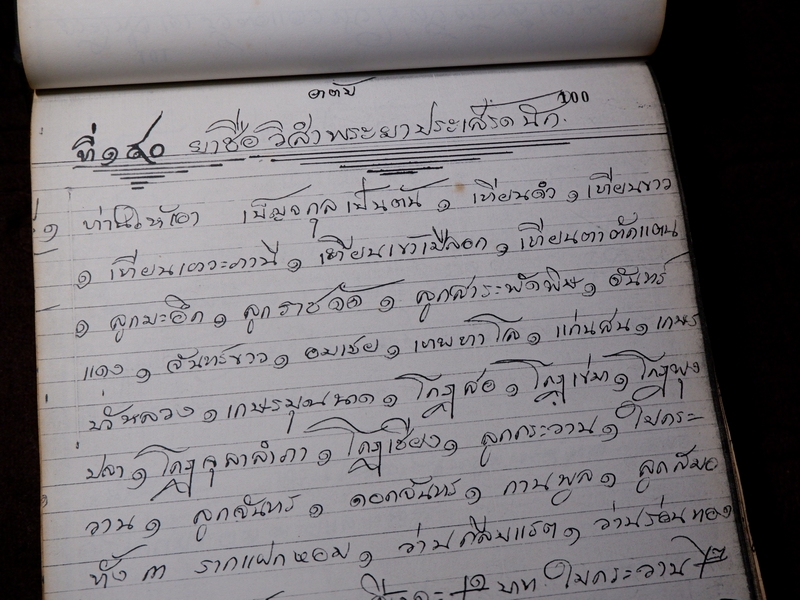 อาตม์ 100
ที่ ๑๔๐ ยาชื่อวิสำพระยาประเสริดนิก.
๑ ท่านให้เอา เบ็ญจกูลเป็นต้น ๑ เทียนดำ ๑ เทียนขาว
๑ เทียนเยาวะภานี ๑ เทียนเข้าเปลือก ๑ เทียนตาตั๊กแตน
๑ ลูกมะอึก ๑ ลูกราชดัด ๑ ลูกสาระพัดพิษ ๑ จันทร์
แดง ๑ จันทร์ขาว ๑ อบเชย ๑ เทพทาโล ๑ แก่นสน ๑ เกษร
บัวหลวง ๑ เกษรบุนนาด ๑ โกฎสอ ๑ โกฎเขมา ๑ โกฎพุง
ปลา ๑ โกฎจุลาลำภา ๑ โกฎเชียง ๑ ลูกกระวาน ๑ ใบกระ
วาน ๑ ลูกจันทร์ ๑ ดอกจันทร์ ๑ กานพูล ๑ ลูกสมอ
ทั้ง ๓ รากแฝกหอม ๑ ว่านกลีบแรด ๑ ว่านร่อนทอง
บาท ใบกระวาน